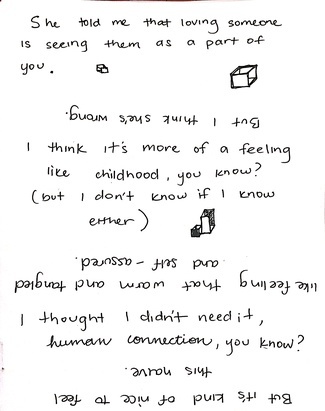 She told me that loving someone
is seeing them as a part of
you.
But I think she's wrong.
I think it's more of a feeling
like childhood, you know?
(but I don't know if I know
either)
like feeling that warm and tangled
and self-assured.
I thought I didn't need it,
human connection, you know?
But it's kind of nice to feel
this naive.